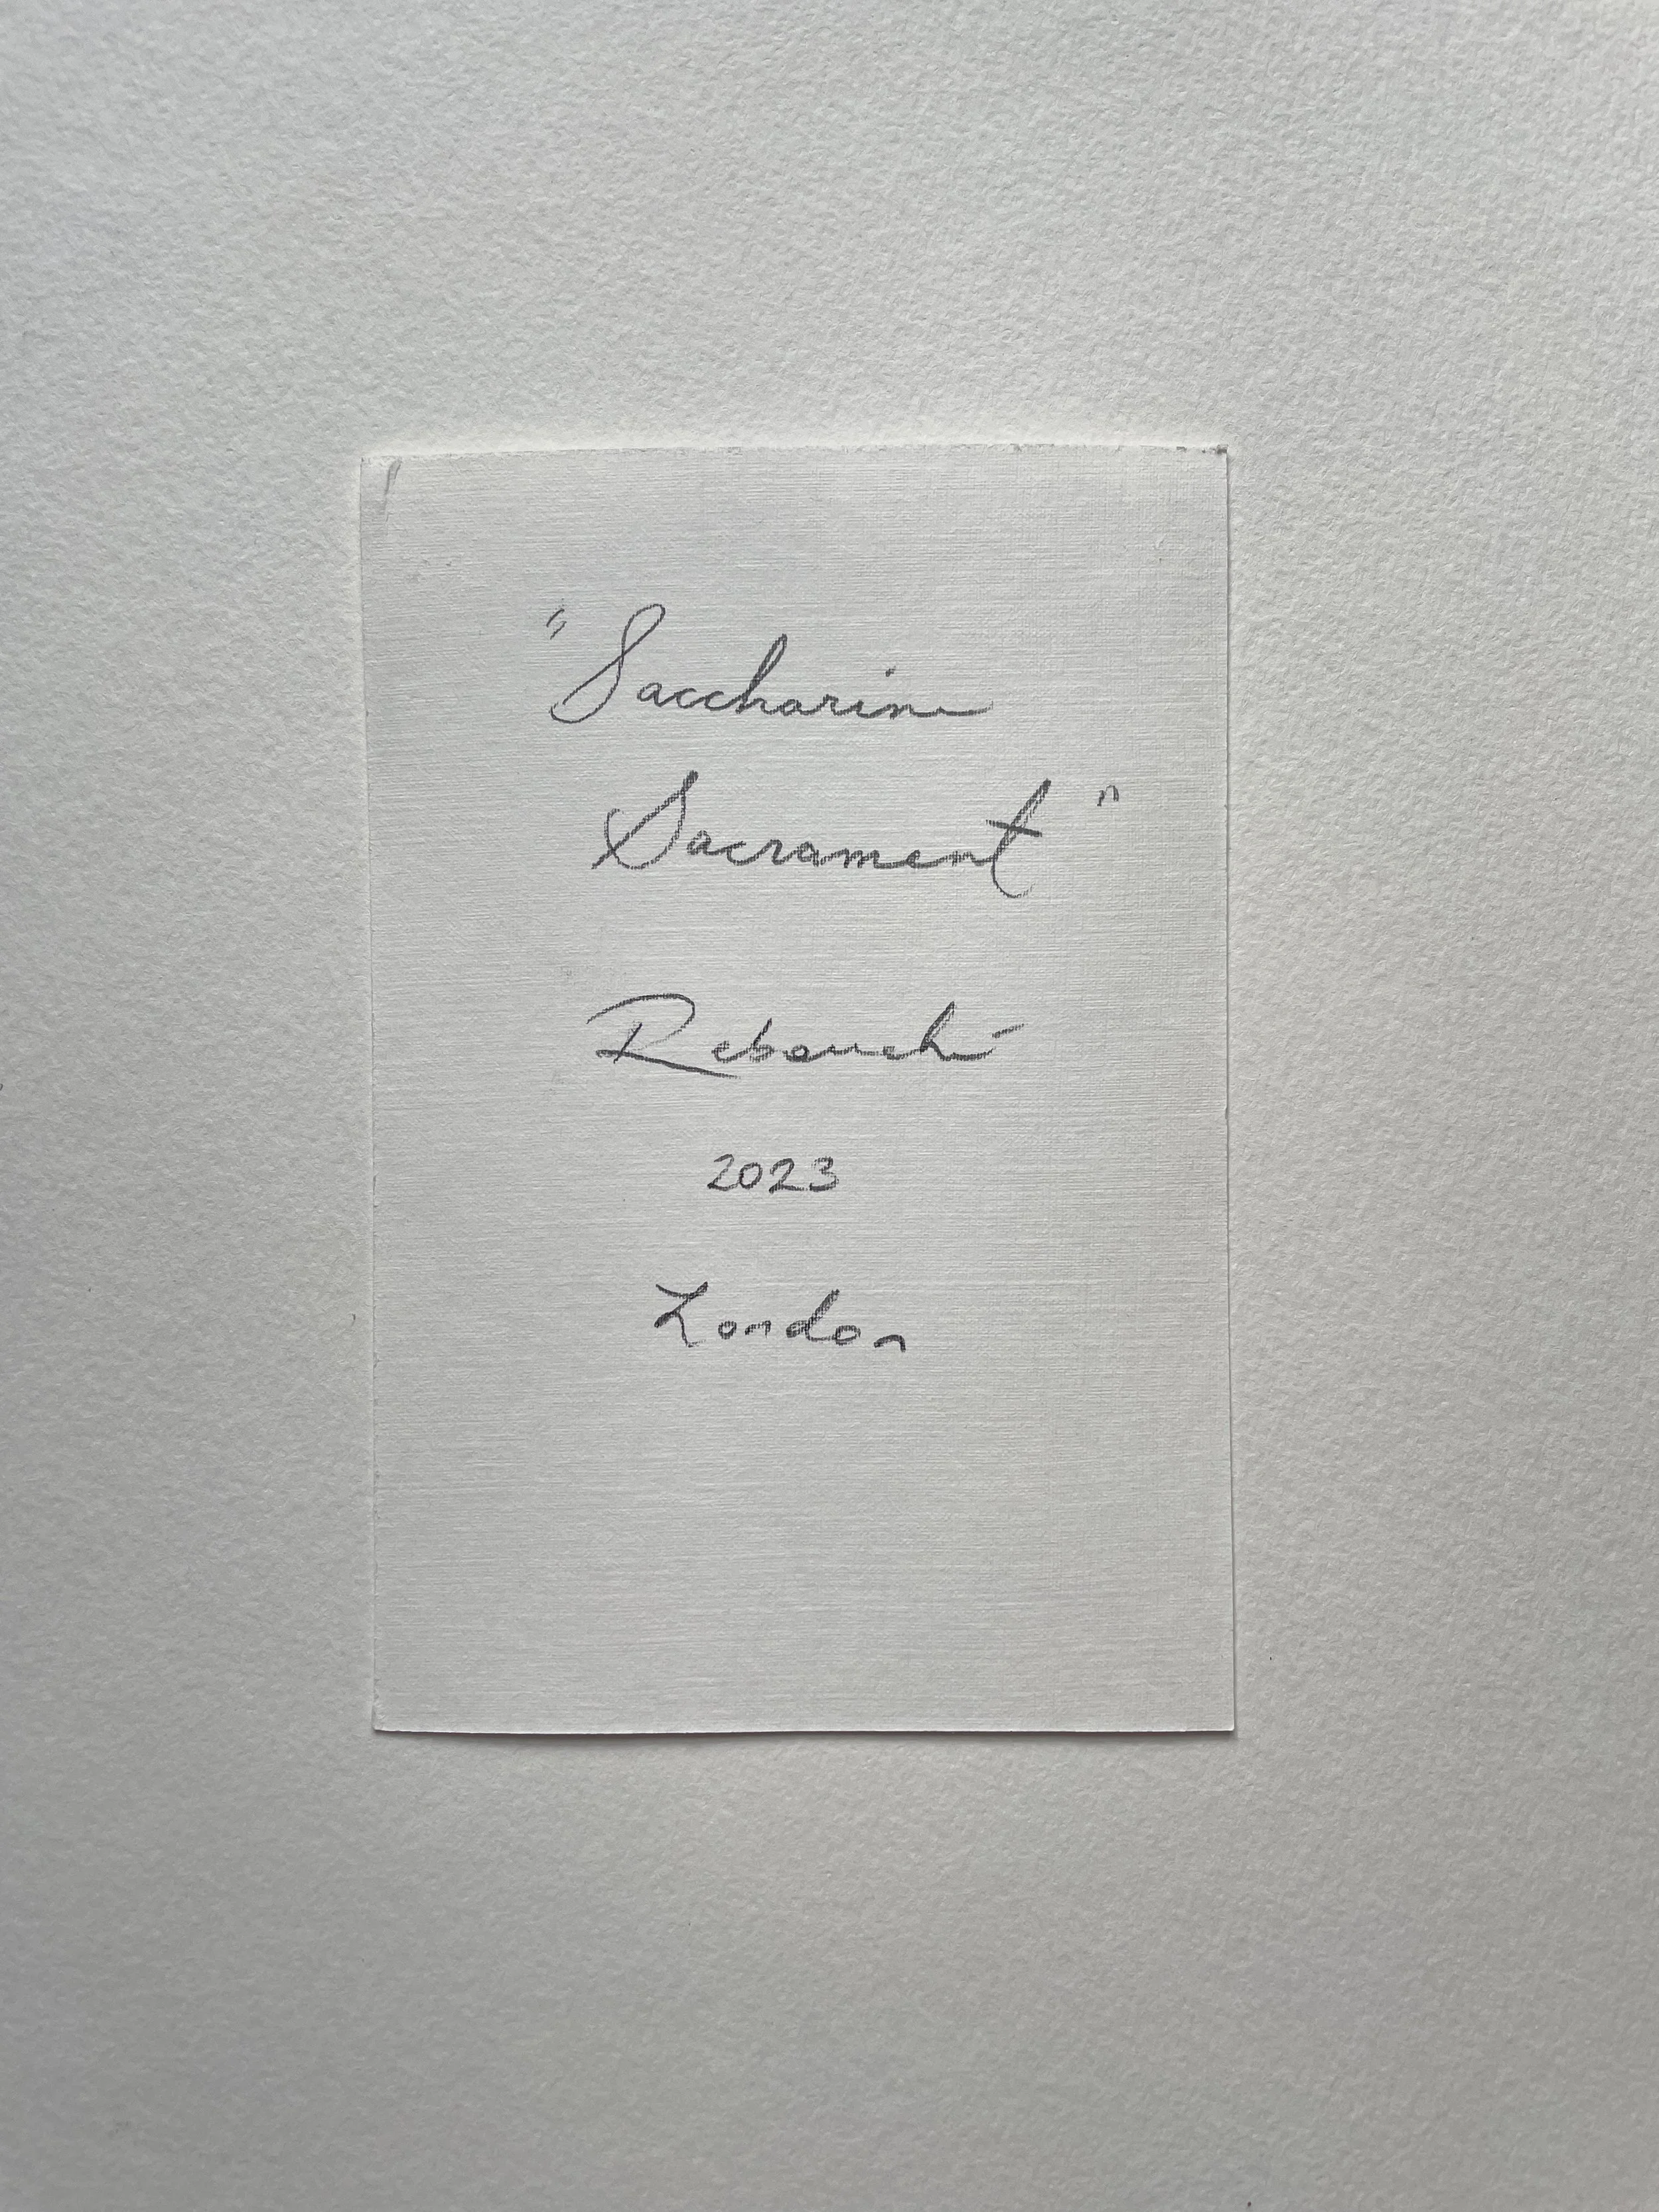 "Saccharine
Sacrament"
Rebouché
2023
London